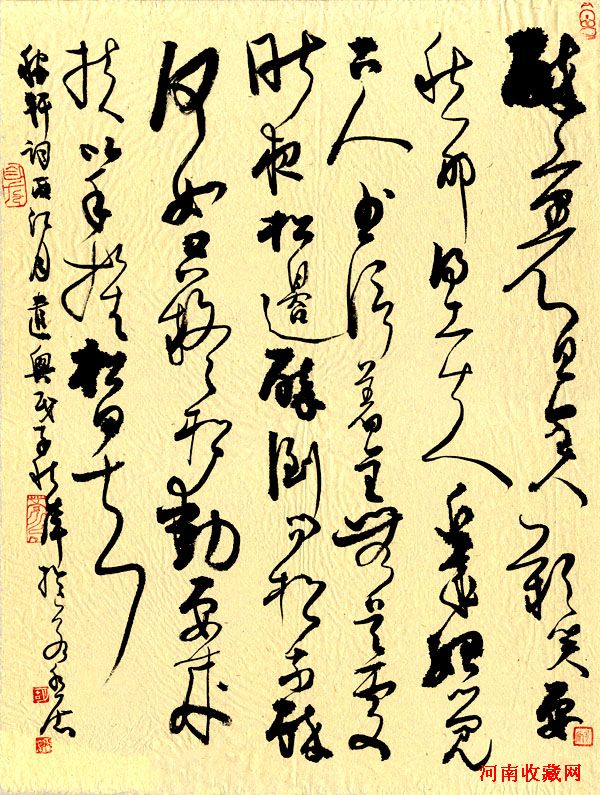 醉里且贪欢笑要
愁那得工夫近来始觉
古人书信著全無是处
昨夜松邊醉倒问松我醉
何如只疑松動要来
扶以手推松曰去
稼轩词西江月遣興戊子秋
河南收藏网